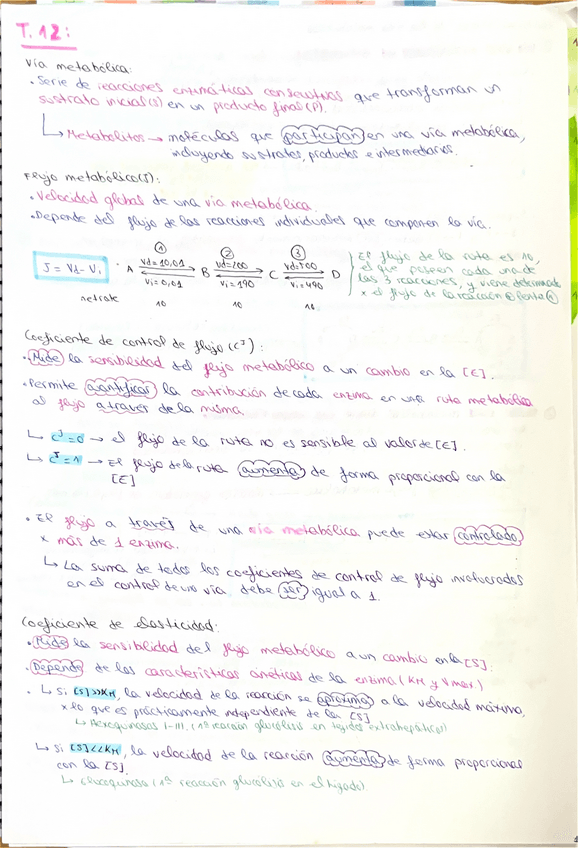 T.12:
Vía metabólica:
• Serie de reacciones enzimáticas consecutivas que transforman un
sustrato inicial(s) en un producto final(P).
↳ Metabolitos → moléculas que participan en una vía metabólica,
incluyendo sustratos, productos e intermediarios.
Flujo metabólico(J):
• Velocidad global de una vía metabólica.
• Depende del flujo de las reacciones individuales que componen la vía.
① ② ③
J = Vd - Vi
A Vd=10,01 Vi=0,01 B Vd=200 Vi=190 C Vd=500 Vi=490 D
net rate 10 10 10
El flujo de la ruta es 10,
el que poseen cada una de
las 3 reacciones, y viene determinado
x el flujo de la reacción lenta ①
Coeficiente de control de flujo (Cᴶ):
• Mide la sensibilidad del flujo metabólico a un cambio en la [E].
• Permite cuantificar la contribución de cada enzima en una ruta metabólica
al flujo a través de la misma
↳ Cᴶ=0 → el flujo de la ruta no es sensible al valor de [E].
↳ Cᴶ=1 → El flujo de la ruta aumenta de forma proporcional con la
[E]
• El flujo a través de una vía metabólica puede estar controlado
x más de 1 enzima.
↳ La suma de todos los coeficientes de control de flujo involucrados
en el control de una vía debe ser igual a 1.
Coeficiente de elasticidad:
• Mide la sensibilidad del flujo metabólico a un cambio en la [S].
• Depende de las características cinéticas de la enzima (KM y Vmax)
• ↳ Si [S]>>KM, la velocidad de la reacción se aproxima a la velocidad máxima,
x lo que es prácticamente independiente de la [S]
↳ Hexoquinasas I-III, (1ª reacción glucólisis en tejidos extrahepáticos)
↳ Si [S]<<KM, la velocidad de la reacción aumenta de forma proporcional
con la [S].
↳ Glucoquinasa (1ª reacción glucólisis en el hígado)